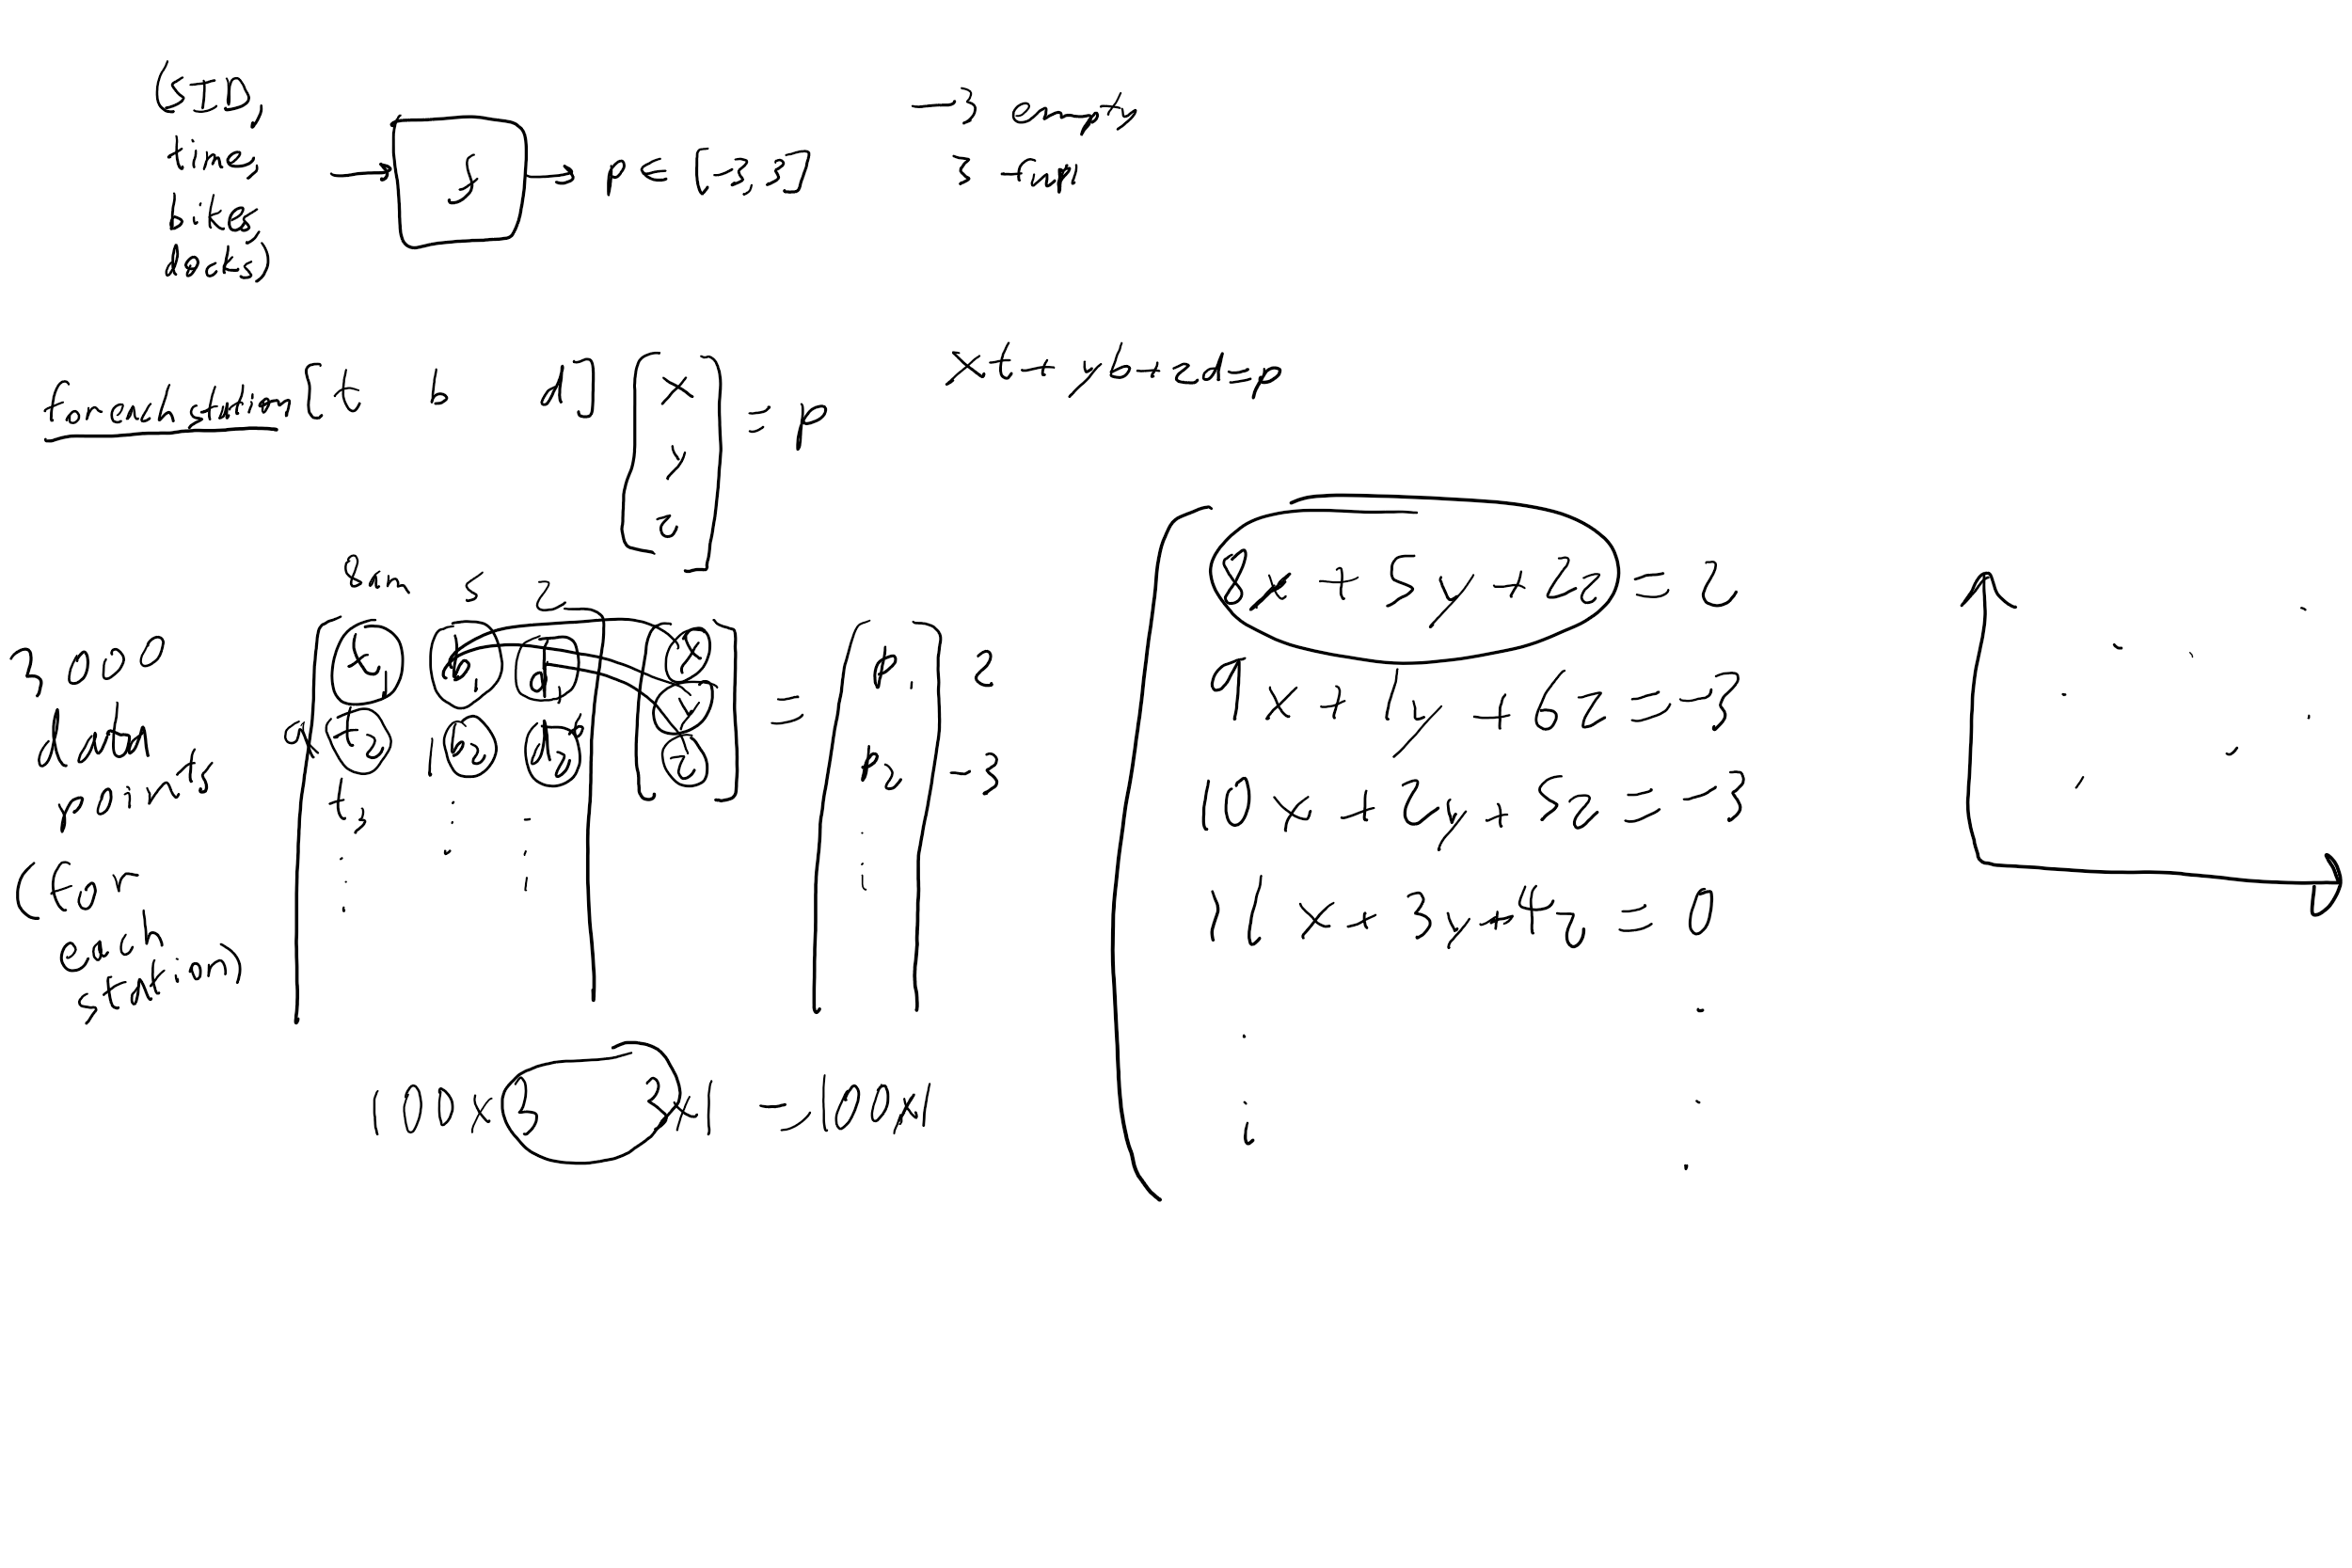 (SID,
time,
bikes,
docks)
→ f → p ∈ [-3, 3]
-3 empty
3 full
for each station [t b d] [x y z] = p
xt + yb + zd = p
3000
data
points
(for
each
station)
8am 5 2
t₁ b₁ d₁ x = p₁ 2
9 t₂ 1 b₂ d₂ 6 y p₂ -3
t₃ z
100x3 3x1 = 100x1
8x + 5y + 2z = 2
9x + 1y + 6z = -3
10x + 2y + 5z = -3
11x + 3y + 4z = 0